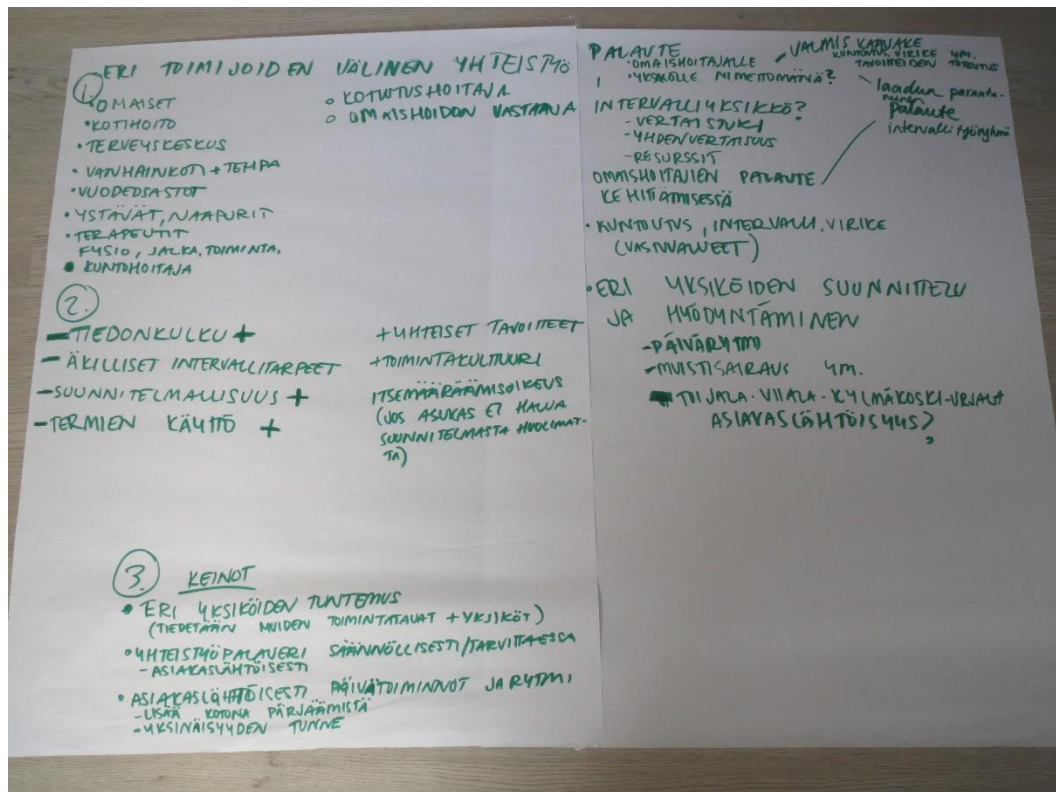 ERI TOIMIJOIDEN VÄLINEN YHTEISTYÖ
1.
OMAISET
• KOTIHOITO
• TERVEYSKESKUS
• VANHAINKOTI + TEHPA
• VUODEOSASTOT
• YSTÄVÄT, NAAPURIT
• TERAPEUTIT
FYSIO, JALKA, TOIMINTA.
• KUNTOHOITAJA
○ KOTIUTUSHOITAJA
○ OMAISHOIDON VASTAAVA
2.
- TIEDONKULKU +
- ÄKILLISET INTERVALLITARPEET
- SUUNNITELMALLISUUS +
- TERMIEN KÄYTTÖ +
+ YHTEISET TAVOITTEET
+ TOIMINTAKULTTUURI
ITSEMÄÄRÄÄMISOIKEUS
(JOS ASUKAS EI HALUA
SUUNNITELMASTA HUOLIMAT-
TA)
3. KEINOT
• ERI YKSIKÖIDEN TUNTEMUS
(TIEDETÄÄN MUIDEN TOIMINTATAVAT + YKSIKÖT)
• YHTEISTYÖPALAVERI SÄÄNNÖLLISESTI/TARVITTAESSA
- ASIAKASLÄHTÖISESTI
• ASIAKASLÄHTÖISESTI PÄIVÄTOIMINNOT JA RYTMI
- LISÄÄ KOTONA PÄRJÄÄMISTÄ
- YKSINÄISYYDEN TUNNE
PALAUTE
• OMAISHOITAJALLE
• YKSIKÖLLE NIMETTÖMÄNÄ?
VALMIS KAAVAKE
KUNTOUTUS, VIRIKE YM.
TAVOITTEIDEN TOTEUTUS
laadun paranta-
minen
palaute
intervalli työryhmä
INTERVALLIYKSIKKÖ?
- VERTAISTUKI
- YHDENVERTAISUUS
- RESURSSIT
OMAISHOITAJIEN PALAUTE
KEHITTÄMISESSÄ
• KUNTOUTUS, INTERVALLI, VIRIKE
(VASTUUALUEET)
• ERI YKSIKÖIDEN SUUNNITTELU
JA HYÖDYNTÄMINEN
- PÄIVÄRYTMI
- MUISTISAIRAUS YM.
TOIJALA - VIIALA - KYLMÄKOSKI - URJALA
ASIAKASLÄHTÖISYYS?